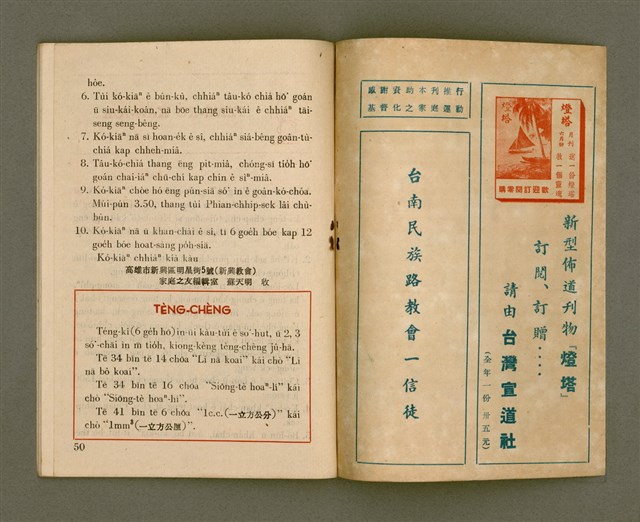 hôe.
6. Túi kó-kiāⁿ ê bûn-kù, chhiáⁿ tâu-kó chiá hō͘ goán
ū siu-kái-koân, nā bōe thang siu-kái ê chhiáⁿ tāi-
seng seng-bêng.
7. Kó-kiāⁿ nā sī hoan-ék ê sî, chhiáⁿ siá-bêng goân-tù-
chiá kap chheh-miâ.
8. Tâu-kó-chiá thang ēng pit-miâ, chóng-sī tio̍h hō͘
goán chai-iáⁿ chū-chí kap chin ê sìⁿ-miâ.
9. Kó-kiāⁿ chòe hó ēng pún-siā só͘ ìn ê goân-kó-chóa.
Múi-pún 3.50, thang tùi Phian-chhip-sek lâi chú-
bûn.
10. Kó-kiāⁿ nā ū khan-chài ê sî, tī 6 goe̍h bóe kap 12
goe̍h bóe hoat-sàng pó͘-siā.
Kó-kiāⁿ chhiáⁿ kià kàu
高雄市新興區明星街5號(新興教會)
家庭之友編輯室　蘇天明　收
TÈNG-CHÈNG
Têng-kî (6 ge̍h hō) in-ūi kàu-tùi ê so͘-hut, ū 2, 3
só͘-chāi m̄ tio̍h, kiong-kēng tèng-chèng jû-hā.
Tē 34 bīn tē 14 chōa "Lī nā koai" kái chò "Lī
nā bô koai".
Tē 34 bīn tē 16 chōa "Siōng-tè hoaⁿ-lí" kái
chò "Siōng-tè hoaⁿ-hí".
Tē 41 bīn tē 6 chōa "1c.c. (一立方公分)" kái
chò "1mm³ (一立方公厘)".
50
感謝資助本刊推行
基督化之家庭運動
台南民族路教會一信徒
燈塔
燈塔
月刊
送一份燈塔
救一個靈魂
歡迎訂閱零購
新型佈道刊物『燈塔』
訂閱、訂贈‥‥
請由台灣宣道社
(全年一份卅五元)